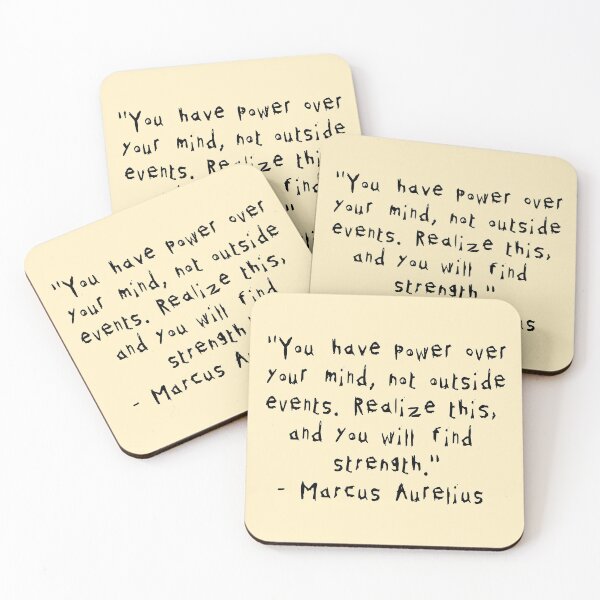 "You have power over
your mind, not outside
events. Realize
find
"You have power over
your mind, not outside
events. Realize this,
and you will find
strength."
"You have power over
your mind, not outside
events. Realize this,
and you will find
strength
- Marcus
"You have power over
your mind, not outside
events. Realize this,
and you will find
strength."
- Marcus Aurelius